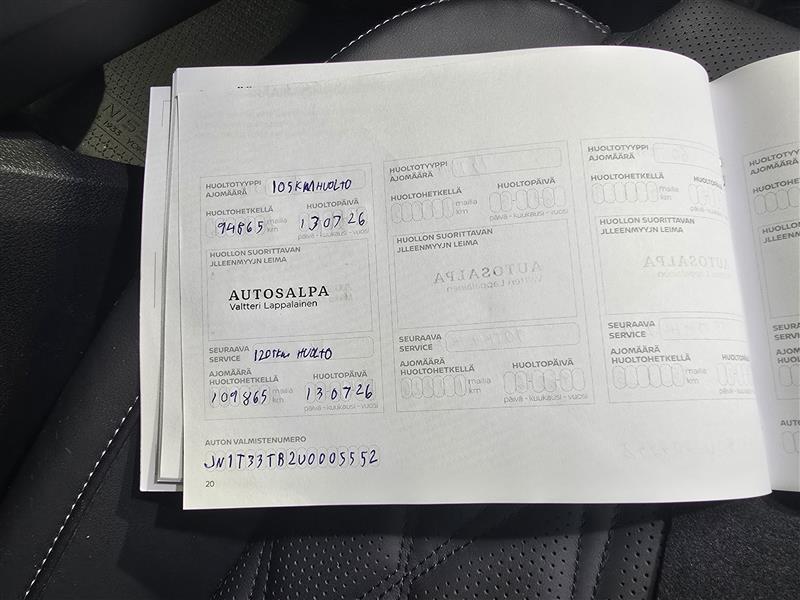 HUOLTOTYYPPI
AJOMÄÄRÄ
105 TKM HUOLTO
HUOLTOHETKELLÄ
94865
mailia
km
HUOLTOPÄIVÄ
130726
päivä - kuukausi - vuosi
HUOLLON SUORITTAVAN
JLLEENMYYJN LEIMA
AUTOSALPA
Valtteri Lappalainen
SEURAAVA
SERVICE
120TKM HUOLTO
AJOMÄÄRÄ
HUOLTOHETKELLÄ
109865
mailia
km
HUOLTOPÄIVÄ
130726
päivä - kuukausi - vuosi
HUOLTOTYYPPI
AJOMÄÄRÄ
HUOLTOHETKELLÄ
mailia
km
HUOLTOPÄIVÄ
päivä - kuukausi - vuosi
HUOLLON SUORITTAVAN
JLLEENMYYJN LEIMA
SEURAAVA
SERVICE
AJOMÄÄRÄ
HUOLTOHETKELLÄ
mailia
km
HUOLTOPÄIVÄ
päivä - kuukausi - vuosi
HUOLTOTYYPPI
AJOMÄÄRÄ
HUOLTOHETKELLÄ
mailia
km
HUOLLON SUORITTAVAN
JLLEENMYYJN LEIMA
SEURAAVA
SERVICE
AJOMÄÄRÄ
HUOLTOHETKELLÄ
mailia
km
HUOLTOPÄIVÄ
päivä - kuukausi - vuosi
AUTON VALMISTENUMERO
JN1T33TB2U0005552
20
HUOLTOTYYPPI
AJOMÄÄRÄ
SEURAAVA
SERVICE
AJOMÄÄRÄ